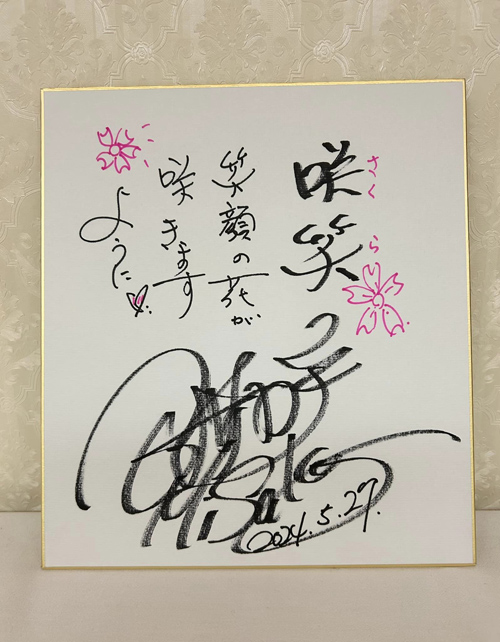 咲笑
さくら
笑顔の花が
咲きます
ように
2024.5.27.